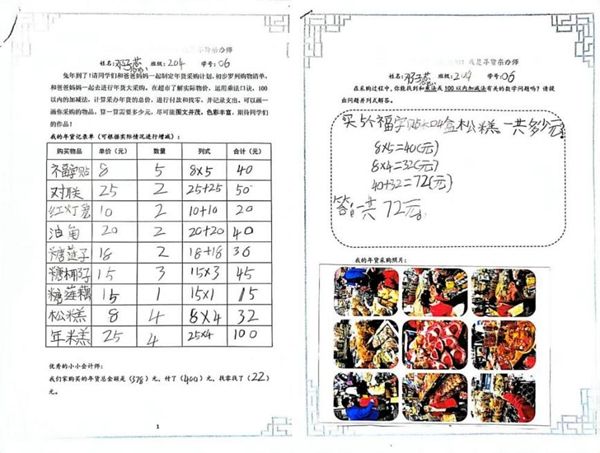 是年货采办师
姓名: 邓子燕 班级: 204 学号: 06
兔年到了!请同学们和爸爸妈妈一起制定年货采购计划,初步罗列购物清单,
和爸爸妈妈一起去进行年货大采购,在超市了解实际物价,运用乘法口诀、100
以内的加减法,计算采办年货的总价,进行付款和找零,并记录支出。可以画一
画你采购的物品,算一算需要多少元,尽可能图文并茂,色彩丰富,期待同学们
的作品!
我的年货记录单(可根据实际情况进行增减):
购买物品 单价(元) 数量 列式 合计(元)
福字贴 8 5 8×5 40
对联 25 2 25+25 50
红灯笼 10 2 10+10 20
油角 20 2 20+20 40
糖莲子 18 2 18+18 36
糖椰子 15 3 15×3 45
糖莲藕 15 1 15×1 15
松糕 8 4 8×4 32
年糕 25 4 25×4 100
优秀的小小会计师:
我们家购买的年货总金额是(378)元,付了(400)元,找零找了(22)
元。
1
我是年货采办师
姓名: 邓子燕 班级: 204 学号: 06
在采购过程中,你能找到和乘法或 100 以内加减法有关的数学问题吗?请提
出问题并列式解答。
买5个福字贴和4盒松糕一共多少元
8×5=40(元)
8×4=32(元)
40+32=72(元)
答:一共72元。
我的年货采购照片: